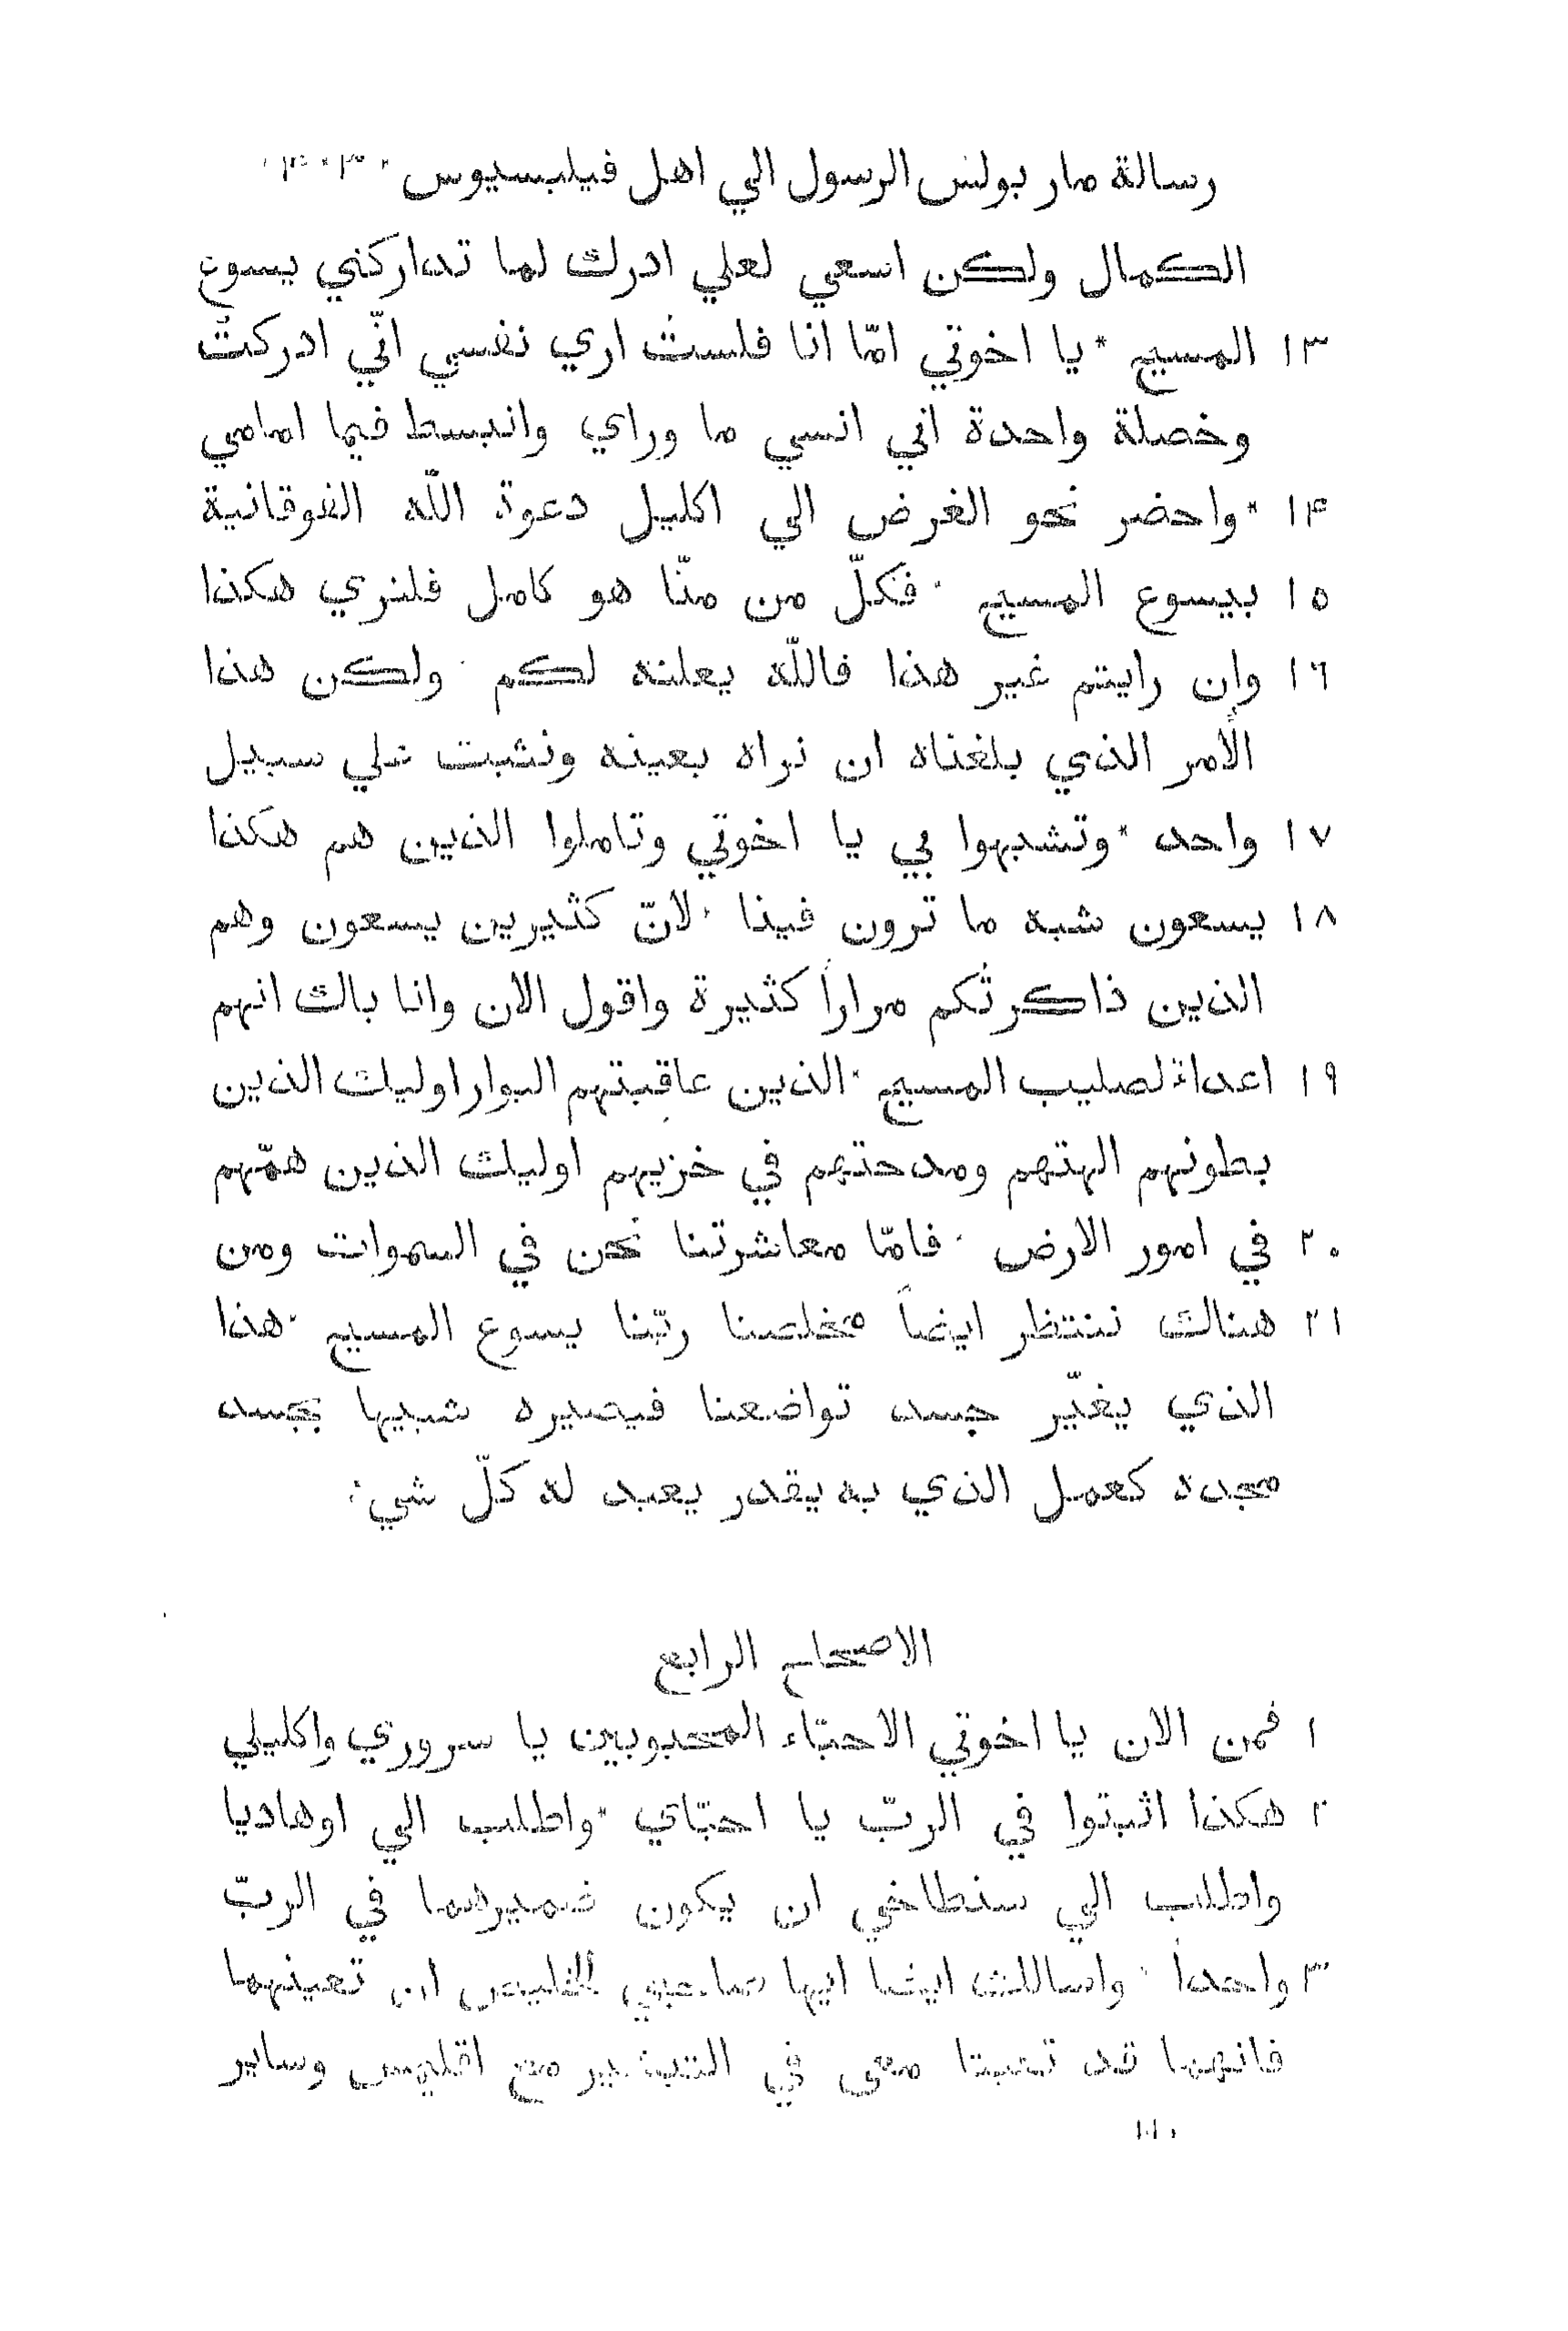 رسالة مار بولس الرسول الي اهل فيلبسيوس * ٣ * ٣ *
الكمال ولكن اسعي لعلي ادرك لما تداركني يسوع
١٣ المسيح * يا اخوتي امّا انا فلستُ اري نفسي انّي ادركتُ
وخصلة واحدة اني انسي ما وراي وانبسط فيما امامي
١۴ * واحضر نحو الغرض الي اكليل دعوة اللّه الفوقانية
١٥ بيسوع المسيح * فكلّ من منّا هو كامل فلنري هكذا
١٦ وان رايتم غير هذا فاللّه يعلنه لكم * ولكن هذا
الأمر الذي بلغناه ان نراه بعينه ونثبت علي سبيل
١٧ واحد * وتشبهوا بي يا اخوتي وتاملوا الذين هم هكذا
١٨ يسعون شبه ما ترون فينا * لانّ كثيرين يسعون وهم
الذين ذاكرتُكم مراراً كثيرة واقول الان وانا باك انهم
١٩ اعداء لصليب المسيح * الذين عاقبتهم البوار اوليك الذين
بطونهم الهتهم ومدحتهم في خزيهم اوليك الذين همّهم
٢٠ في امور الارض * فامّا معاشرتنا نحن في السموات ومن
٢١ هناك ننتظر ايضاً مخلصنا ربّنا يسوع المسيح * هذا
الذي يغيّر جسد تواضعنا فيصيره شبيها بجسد
مجده كعمل الذي به يقدر يعبد له كلّ شي :
الاصحاح الرابع
١ فمن الان يا اخوتي الاحبّاء المحبوبين يا سروري واكليلي
٢ هكذا اثبتوا في الربّ يا احبّاي * واطلب الي اوهاديا
واطلب الي سنطاخي ان يكون ضميرهما في الربّ
٣ واحداً * واسالك ايضا ايها صاحبي ان تعينهما
فانهما قد تعبتا معي في التبشير مع اقليمس وساير